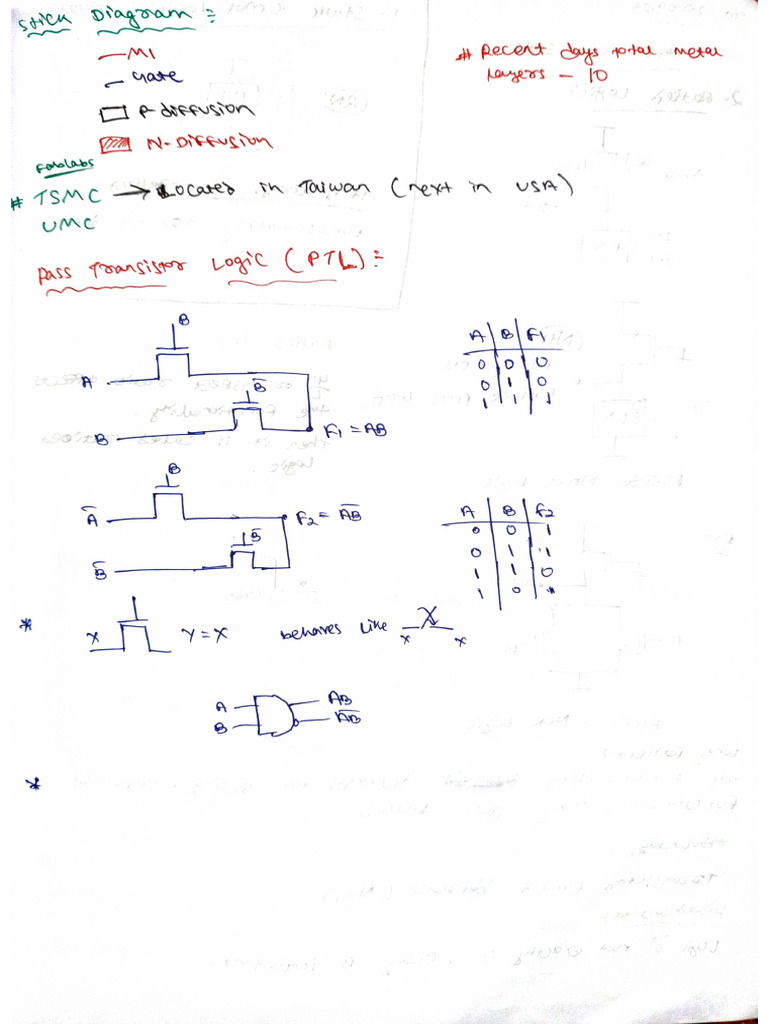 Stick Diagram :-
— M1
— Gate
P-diffusion
N-Diffusion
# Recent days total metal
layers - 10
Fablabs
# TSMC → Located in Taiwan (next in USA)
UMC
Pass Transistor Logic (PTL) :-
B
A
B̅
B
F1 = AB
A B F1
0 0 0
0 1 0
1 1 1
B
A̅
F2 = A̅B̅
B̅
B̅
A B F2
0 0 1
0 1 1
1 1 0
1 0
* X Y = X behaves like X X X
A AB
B A̅B̅
*